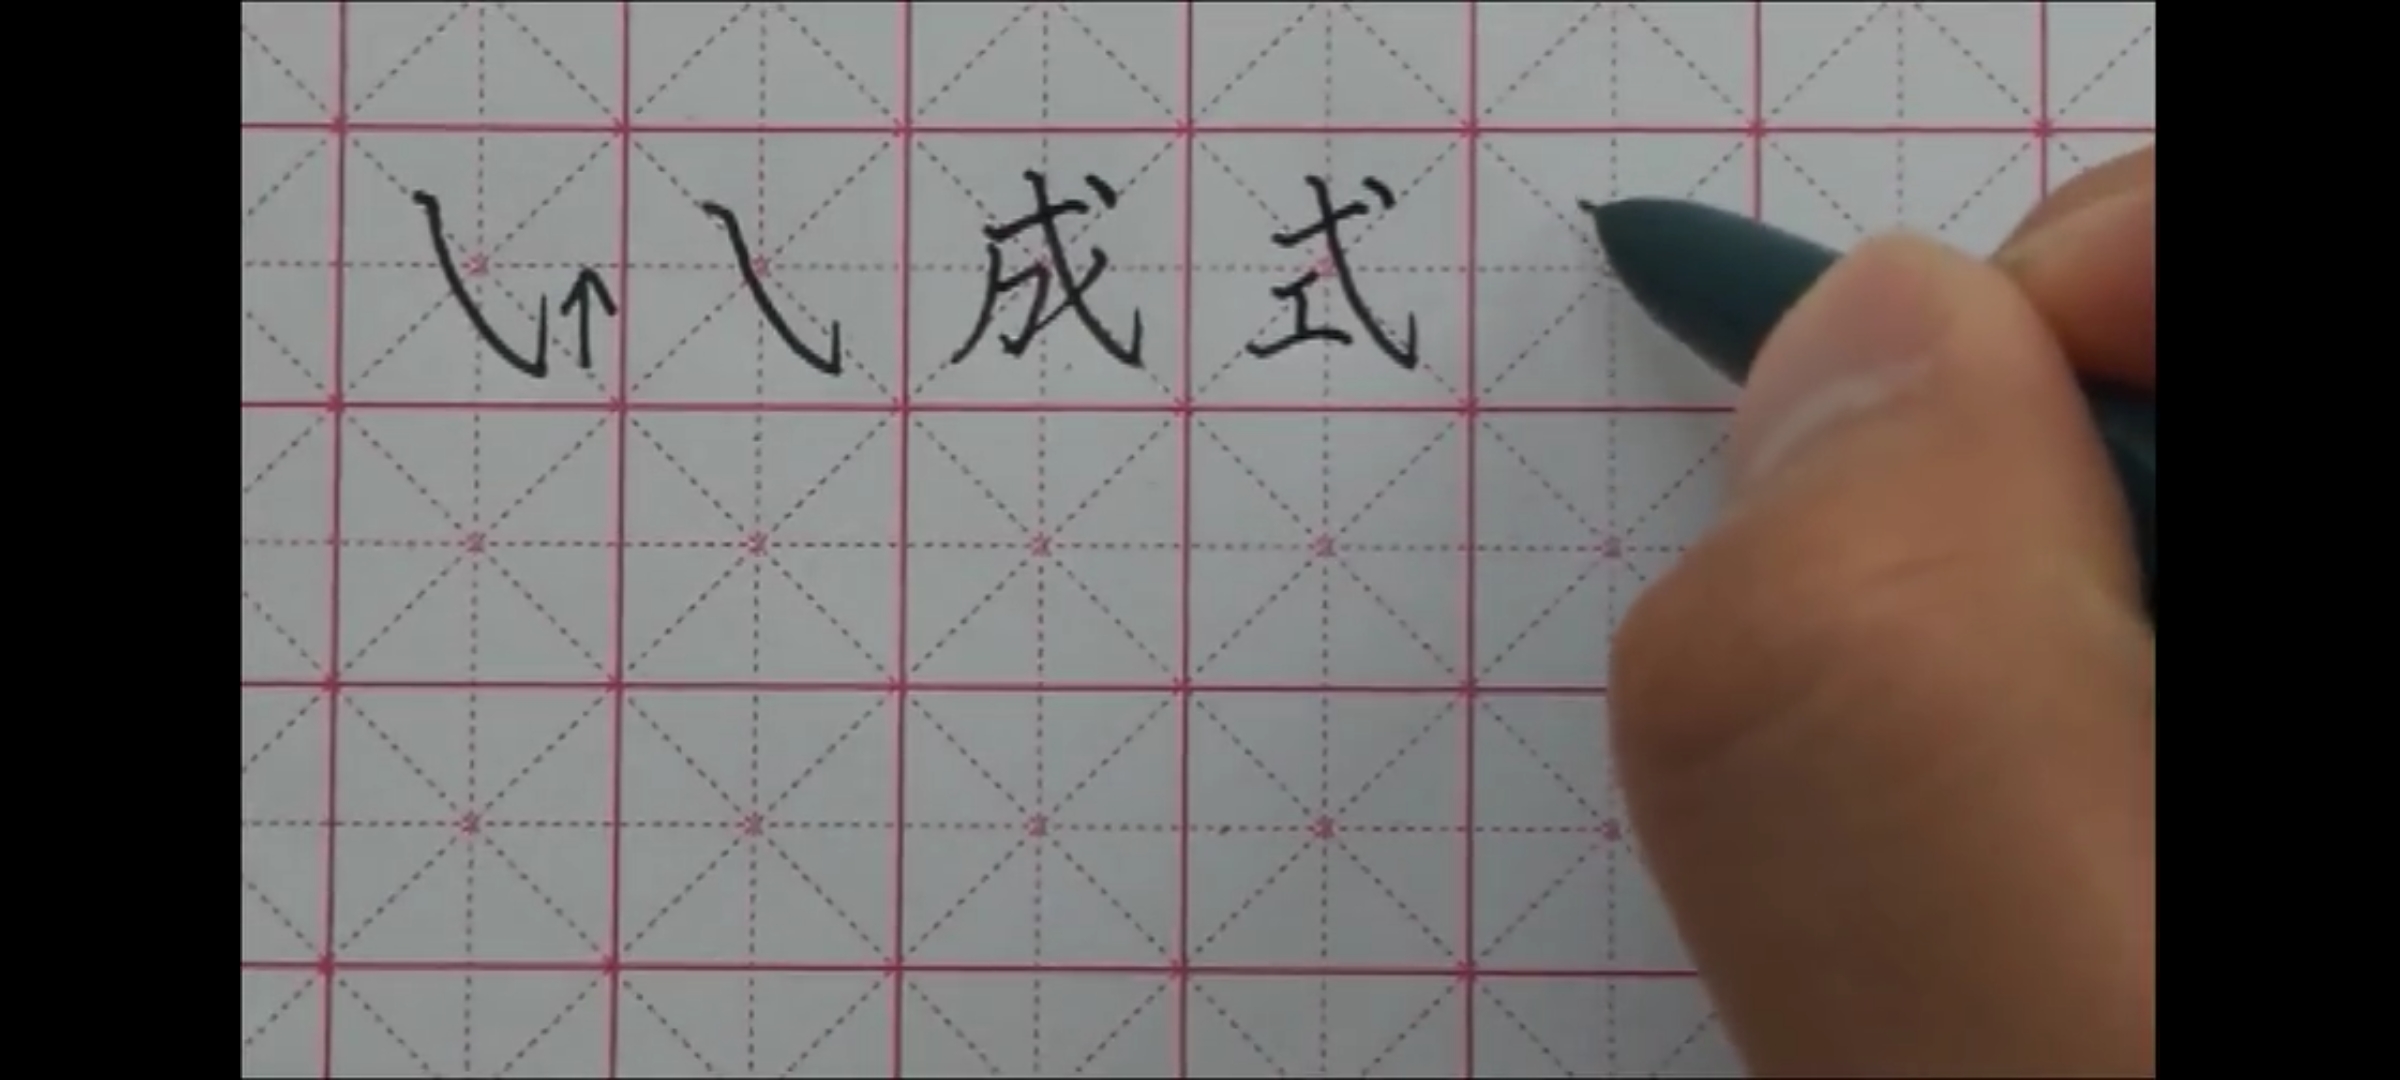 ㇂↑㇂成式